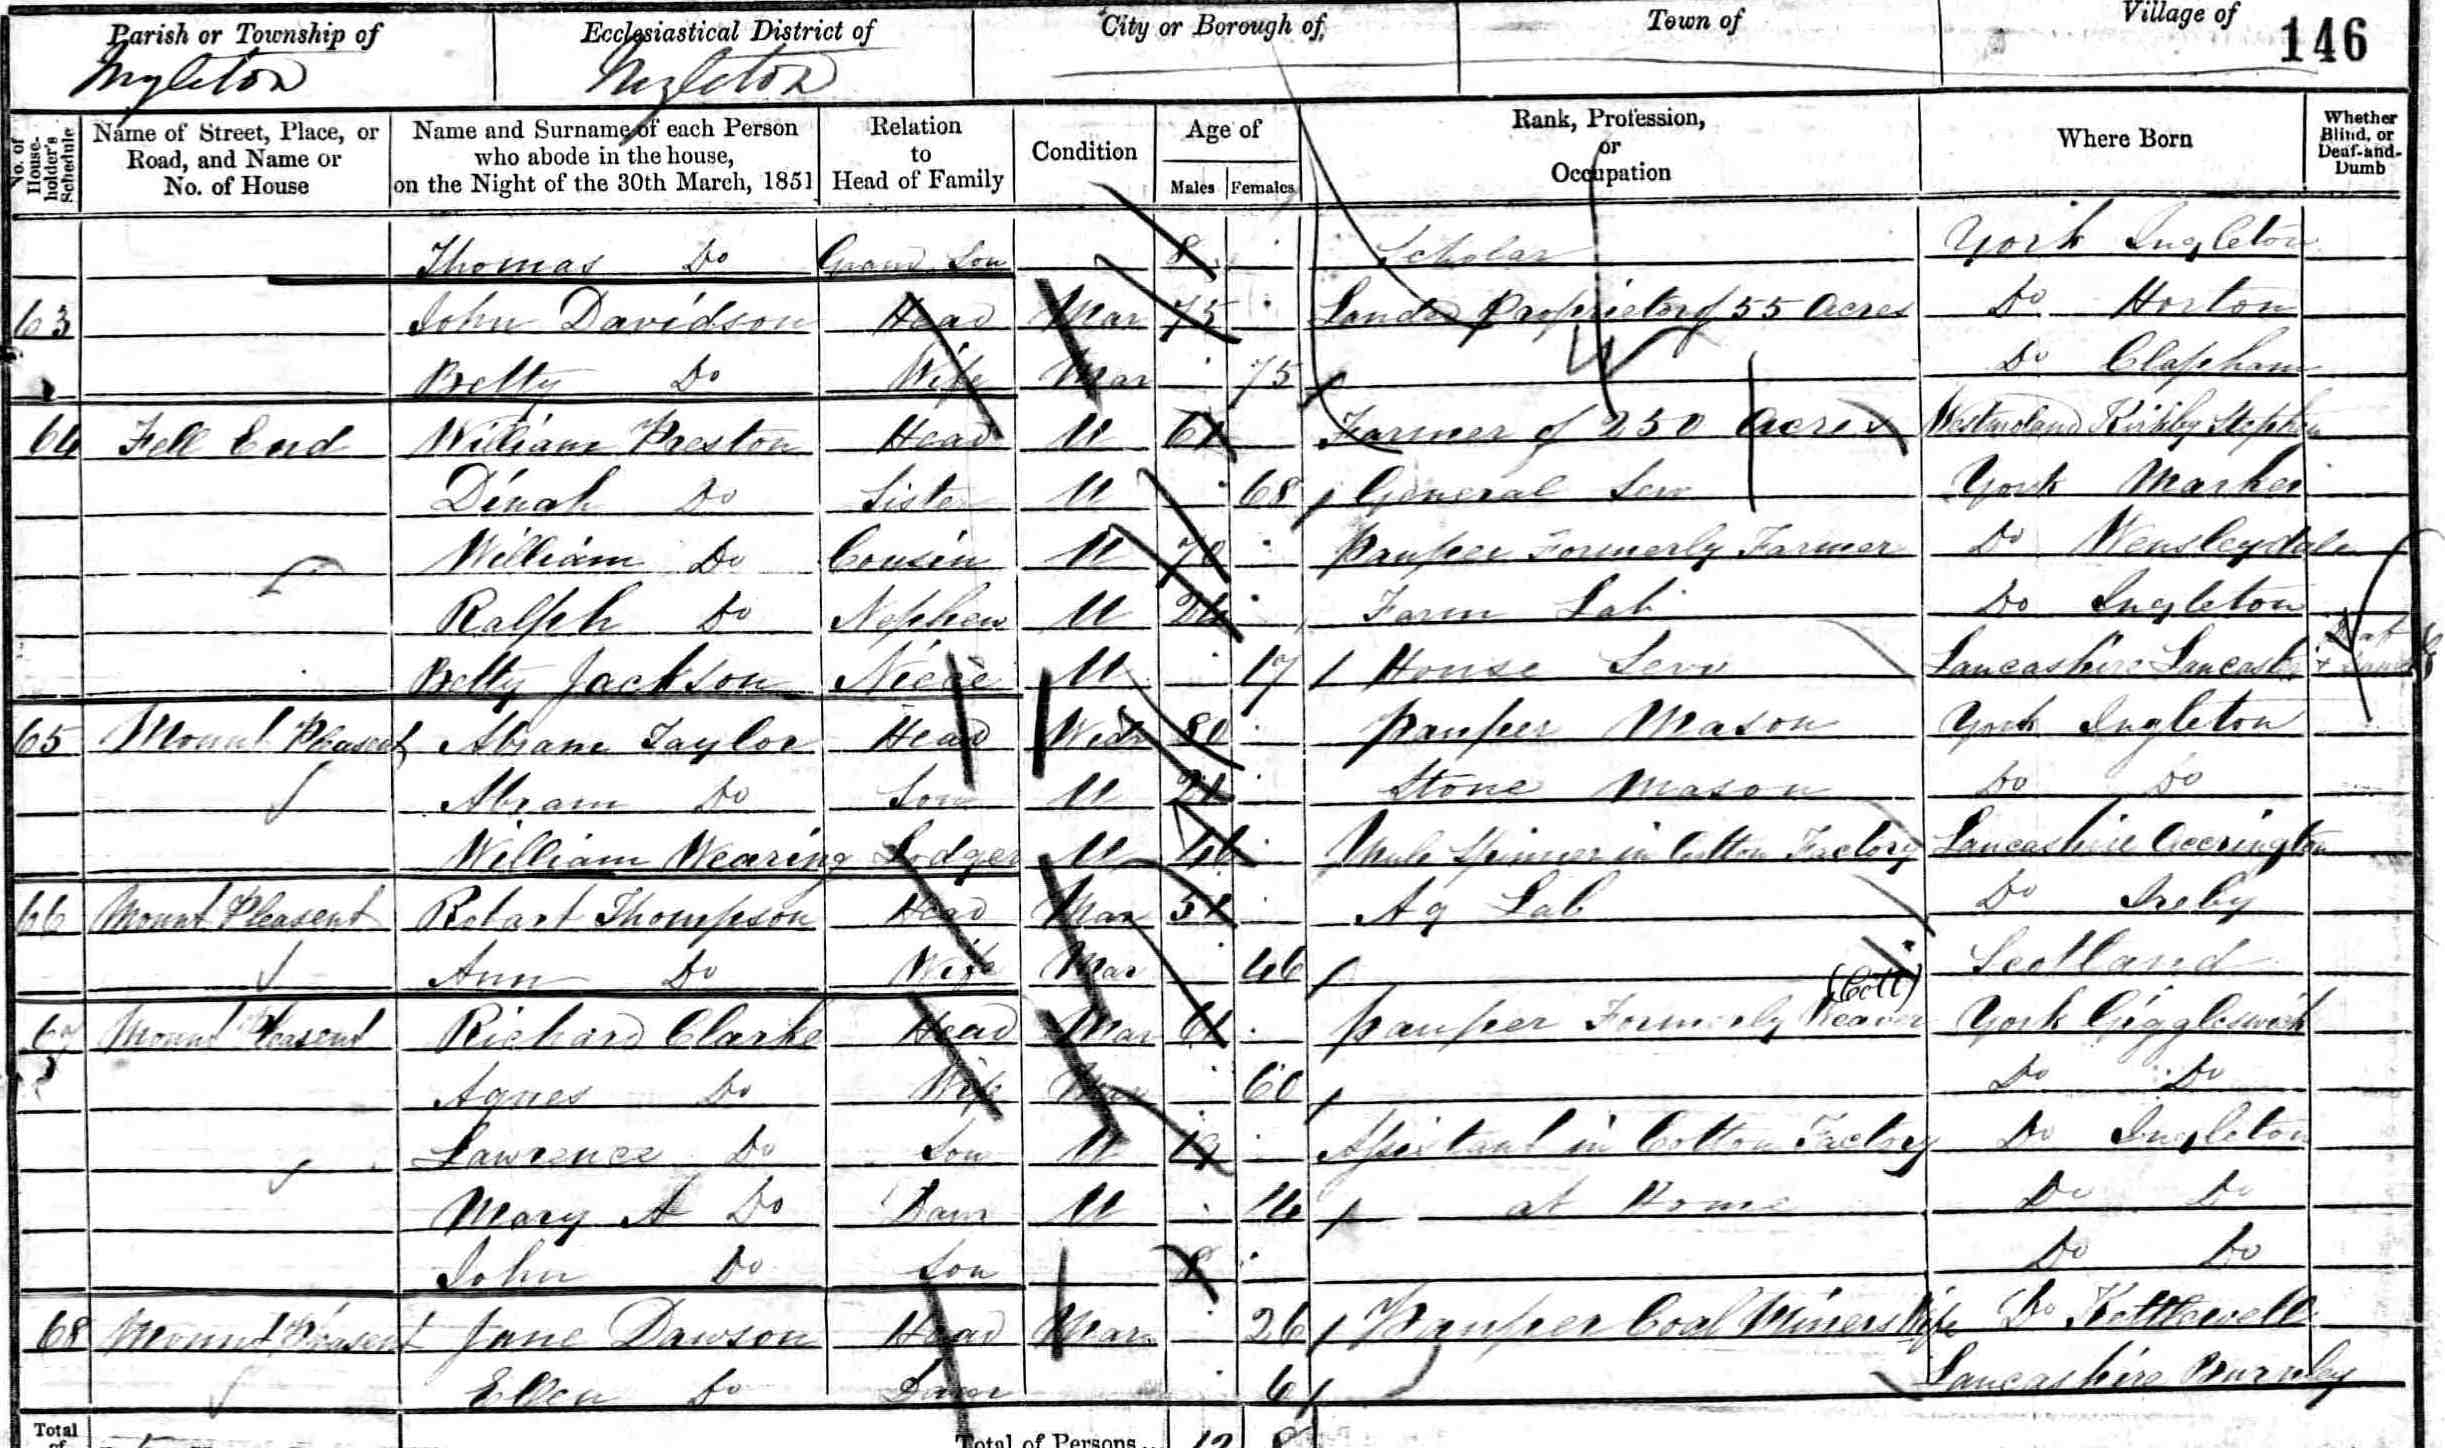 Parish or Township of Ecclesiastical District of City or Borough of Town of Village of 146
Ingleton Ingleton
No. of House-holder's Schedule Name of Street, Place, or Road, and Name or No. of House Name and Surname of each Person who abode in the house, on the Night of the 30th March, 1851 Relation to Head of Family Condition Age of Males Females Rank, Profession, or Occupation Where Born Whether Blind, or Deaf-and-Dumb
Thomas Do Grand Son 8 Scholar York Ingleton
63 John Davidson Head Mar 75 Landed Proprietor of 55 Acres Do Horton
Betty Do Wife Mar 75 Do Clapham
64 Fell End William Preston Head U 61 Farmer of 250 Acres Westmoland Kirkby Stephen
Dinah Do Sister U 68 General Serv York
William Do Cousin U 70 Pauper Formerly Farmer Do Wensleydale
Ralph Do Nephew U 24 Farm Lab Do Ingleton
Betty Jackson Niece U 17 House Serv Lancashire Lancaster Deaf &
65 Mount Pleasent Abram Taylor Head Widr 80 Pauper Mason York Ingleton
Abram Do Son U Stone Mason Do Do
William Wearing Lodger U Mule Spinner in Cotton Factory Lancashire Accrington
66 Mount Pleasent Robart Thompson Head Mar 51 Ag Lab Do Ireby
Ann Do Wife Mar 46 Scotland
67 Mount Pleasent Richard Clarke Head Mar 61 Pauper Formerly Weaver (Cott) York Giggleswick
Agnes Do Wife Mar 60 Do Do
Lawrence Do Son U 19 Assistant in Cotton Factory Do Ingleton
Mary A Do Daur U 14 at Home Do Do
John Do Son 8 Do Do
68 Mount Pleasent Jane Dawson Head Mar 26 Pauper Coal Miners Wife Do Kettlewell
Ellen Do Daur 6 Lancashire Burnley
Total of Total of Persons... 12 8